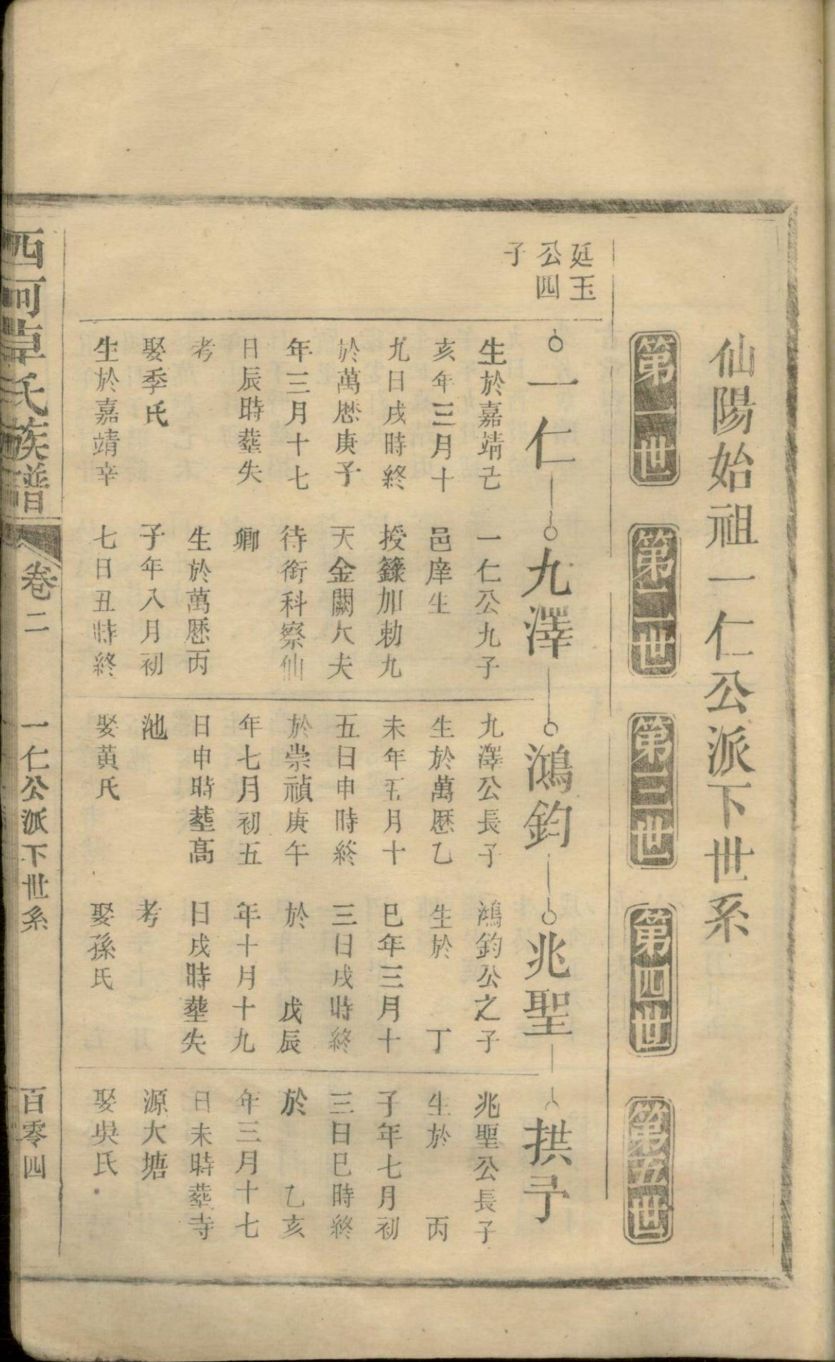 仙陽始祖一仁公派下世系
第一世
第二世
第三世
第四世
第五世
廷玉
公四
子
一仁
生於嘉靖㐰
亥年三月十
九日戌時終
於萬厯庚子
年三月十七
日辰時塟失
考
娶季氏
生於嘉靖辛
九澤
一仁公九子
邑庠生
授籙加勅九
天金闕大夫
待銜科察仙
卿
生於萬厯丙
子年八月初
七日丑時終
鴻鈞
九澤公長子
生於萬厯乙
未年五月十
五日申時終
於崇禎庚午
年七月初五
日申時塟高
池
娶黃氏
兆聖
鴻鈞公之子
生於 丁
巳年三月十
三日戌時終
於 戊辰
年十月十九
日戌時塟失
考
娶孫氏
拱予
兆聖公長子
生於 丙
子年七月初
三日巳時終
於 乙亥
年三月十七
日未時塟寺
源大塘
娶吳氏
西河卓氏族譜
卷二
一仁公派下世系
百零四